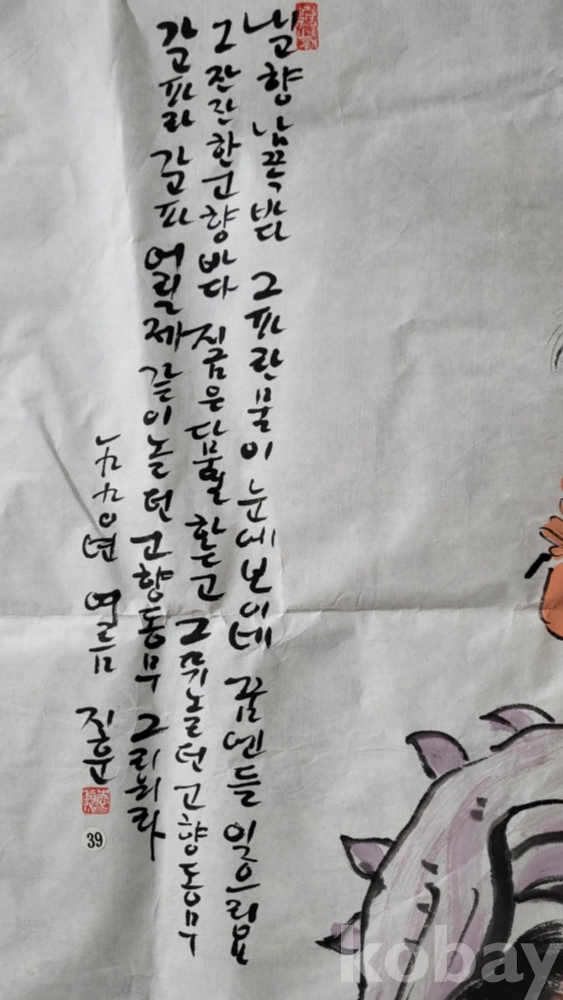 내고향 남쪽바다 그 파란물이 눈에 보이네 꿈엔들 잊으리요
그 잔잔한 고향바다 지금은 다 무얼 하는고 그 뛰놀던 고향동무
가고파라 가고파 어릴제 같이놀던 고향동무 그리워라
一九九0년 여름 지훈
39
kobay